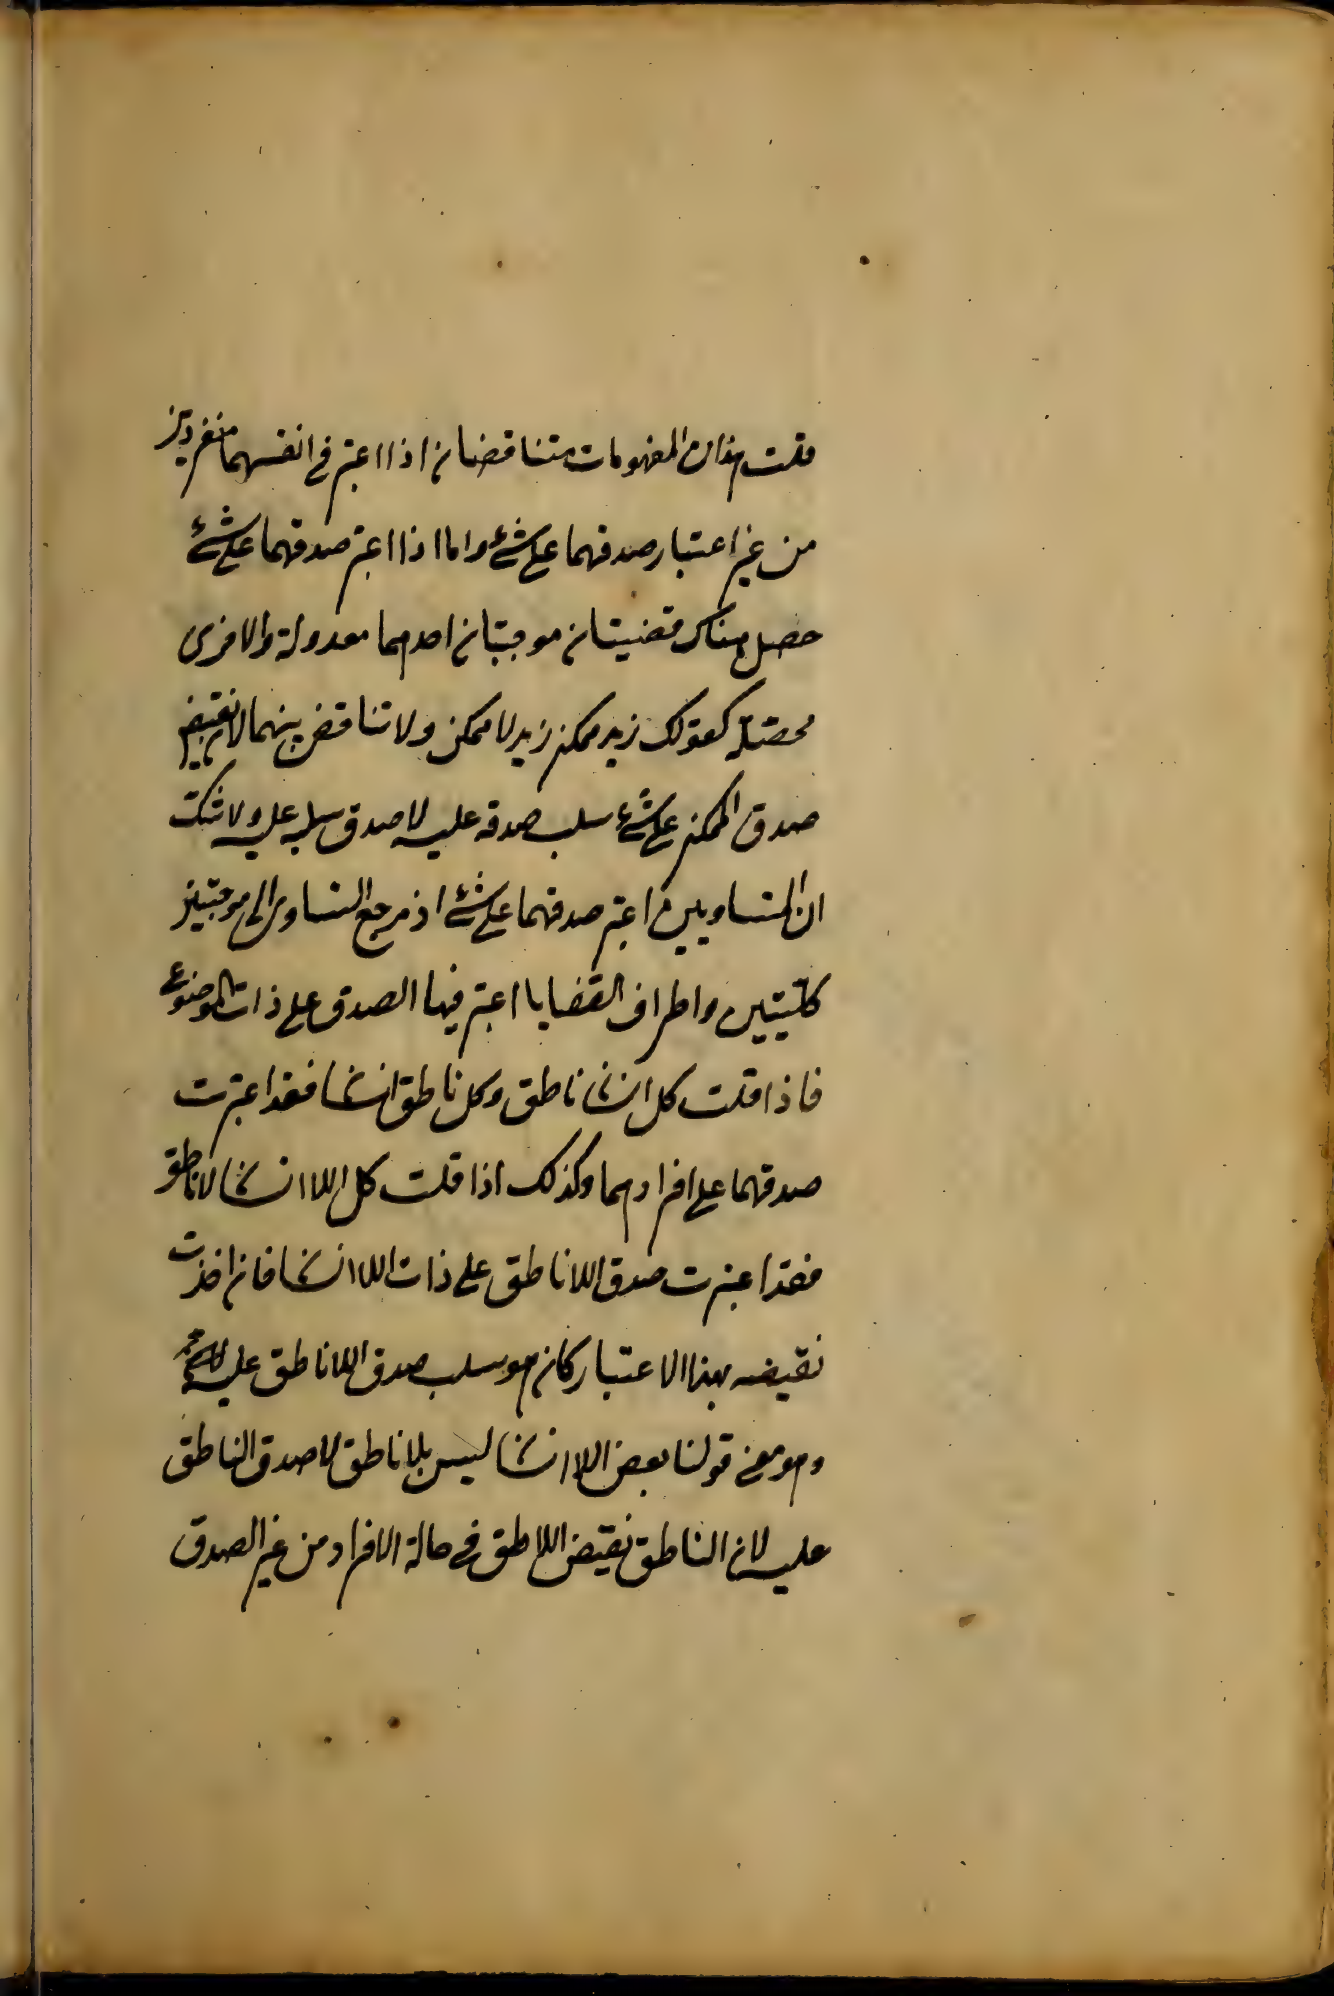 قلت هذان المفهومات متناقضان اذا اعتبر في انفسهما منفردين
من غير اعتبار صدقهما على شئ واما اذا اعتبر صدقهما على شئ
حصل هناك قضيتان موجبتان احدهما معدولة والاخرى
محصلة كقولك زيد ممكن زيد لا ممكن ولا تناقض بينهما لان نقيض
صدق الممكن على شئ سلب صدقه عليه لا صدق سلبه عليه ولا شك
ان المتساويين اعتبر صدقهما على شئ اذ مرجع التساوى الى موجبتين
كليتين واطراف القضايا اعتبر فيها الصدق على ذات الموضوع
فاذا قلت كل انسان ناطق وكل ناطق انسان فقد اعتبرت
صدقهما على افرادهما وكذلك اذا قلت كل اللاانسان لاناطق
فقد اعتبرت صدق اللاناطق على ذات اللاانسان فان اخذت
نقيضه بهذا الاعتبار كان هو سلب صدق اللاناطق عليه
وهو معنى قولنا بعض اللاانسان ليس بلاناطق لا صدق الناطق
عليه لان الناطق نقيض اللاطق في حالة الافراد من غير الصدق